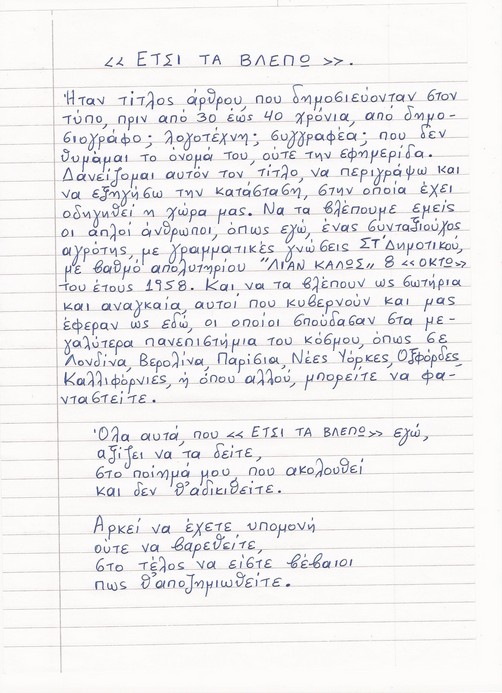 << ΕΤΣΙ ΤΑ ΒΛΕΠΩ >>.
Ήταν τίτλος άρθρου, που δημοσιεύονταν στον
τύπο, πριν από 30 έως 40 χρόνια, από δημο-
σιογράφο; λογοτέχνη; συγγραφέα; που δεν
θυμάμαι το όνομά του, ούτε την εφημερίδα.
Δανείζομαι αυτόν τον τίτλο, να περιγράψω και
να εξηγήσω την κατάσταση, στην οποία έχει
οδηγηθεί η χώρα μας. Να τα βλέπουμε εμείς
οι απλοί άνθρωποι, όπως εγώ, ένας συνταξιούχος
αγρότης, με γραμματικές γνώσεις ΣΤ΄ Δημοτικού,
με βαθμό απολυτηρίου "ΛΙΑΝ ΚΑΛΩΣ" 8 << ΟΚΤΩ >>
του έτους 1958. Και να τα βλέπουν ως σωτήρια
και αναγκαία, αυτοί που κυβερνούν και μας
έφεραν ως εδώ, οι οποίοι σπούδασαν στα με-
γαλύτερα πανεπιστήμια του κόσμου, όπως σε
Λονδίνα, Βερολίνα, Παρίσια, Νέες Υόρκες, Οξφόρδες
Καλλιφόρνιες, ή όπου αλλού, μπορείτε να φα-
νταστείτε.
Όλα αυτά, που << ΕΤΣΙ ΤΑ ΒΛΕΠΩ >> εγώ,
αξίζει να τα δείτε,
στο ποίημά μου, που ακολουθεί
και δεν θ' αδικιθείτε.
Αρκεί να έχετε υπομονή
ούτε να βαρεθείτε,
στο τέλος να είστε βέβαιοι
πως θ' αποζημιωθείτε.